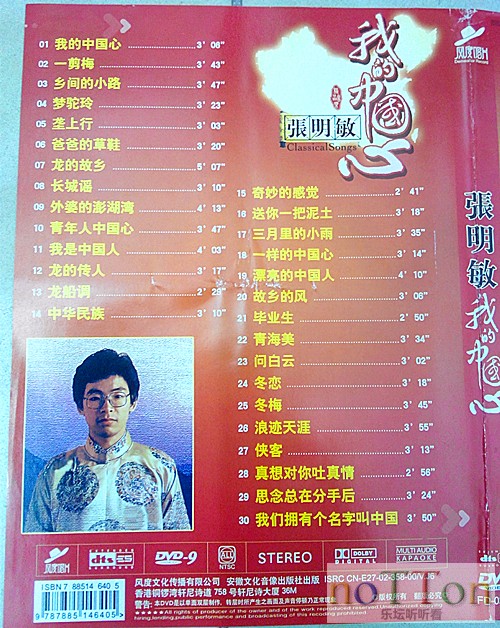 01 我的中国心 3' 06"
02 一剪梅 3' 43"
03 乡间的小路 3' 47"
04 梦驼玲 3' 23"
05 垄上行 3' 03"
06 爸爸的草鞋 3' 20"
07 龙的故乡 5' 07"
08 长城谣 3' 10"
09 外婆的澎湖湾 4' 13"
10 青年人中国心 3' 47"
11 我是中国人 4' 03"
12 龙的传人 3' 17"
13 龙船调 2' 25"
14 中华民族 3' 10"
我的中國心
張明敏
ClassicalSongs
风度唱片
15 奇妙的感觉 2' 41"
16 送你一把泥土 3' 18"
17 三月里的小雨 3' 35"
18 一样的中国心 3' 14"
19 漂亮的中国人 4' 10"
20 故乡的风 3' 06"
21 毕业生 2' 50"
22 青海美 3' 34"
23 问白云 3' 02"
24 冬恋 3' 18"
25 冬梅 3' 45"
26 浪迹天涯 3' 55"
27 侠客 3' 13"
28 真想对你吐真情 2' 56"
29 思念总在分手后 3' 24"
30 我们拥有个名字叫中国 3' 50"
張明敏
我的中國心
dts
DVD-9
ALL
NTSC
STEREO
DOLBY
DIGITAL
MULTI AUDIO
KARAOKE
ISBN 7 88514 640 5
9 787885 146405
风度文化传播有限公司 安徽文化音像出版社出版 ISRC CN-E27-02-358-00/V.J6
香港铜锣湾轩尼诗道 758 号轩尼诗大厦 36M
警告: 本DVD是以单面双层制作,
All rights of the producer of the owner of the work reproduced
hiring,lending,public performance and broadcasting of this recording prohibited
乐坛听听看